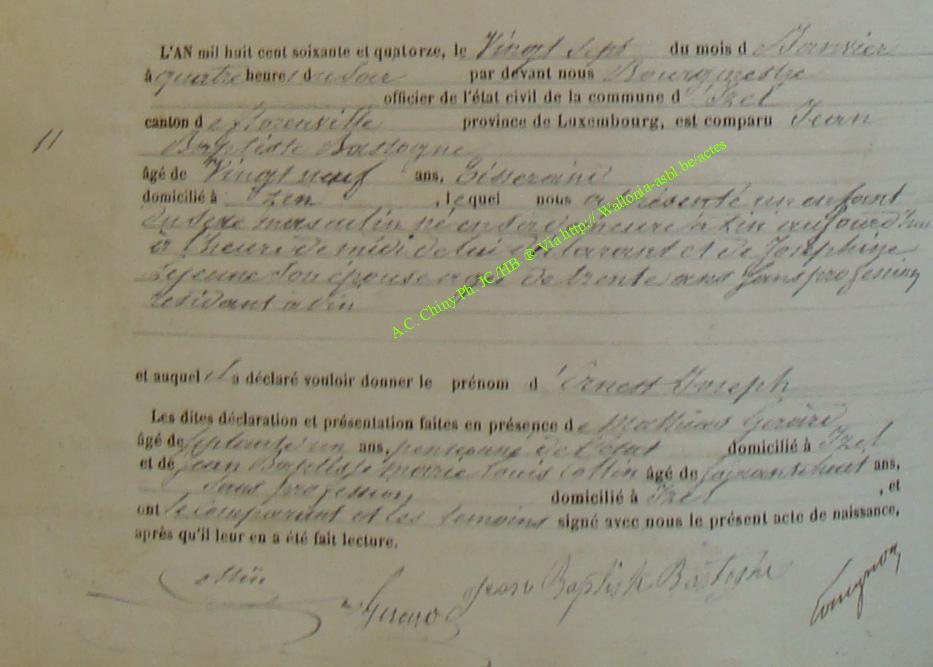 L'AN mil huit cent soixante et quatorze, le Vingt sept du mois d Janvier
à quatre heures du soir par devant nous Bourgmestre
officier de l'état civil de la commune d' Izel
canton de Florenville province de Luxembourg, est comparu Jean
11
Baptiste Bastogne
âgé de Vingt neuf ans, tisserand
domicilié à , lequel nous a présenté un enfant
du sexe masculin né en sa demeure à aujourd'hui
à l'heure de midi de lui déclarant et de Joséphine
Lejeune son épouse agée de trente ans sans profession
résidant à
et auquel il a déclaré vouloir donner le prénom d' Ernest Joseph
Les dites déclaration et présentation faites en présence de Mathias Gérard
âgé de septante un ans, pensionné de l'état domicilié à Izel
et de Jean Baptiste Marie Louis Collin âgé de ans,
sans profession domicilié à Izel , et
ont le comparant et les témoins signé avec nous le présent acte de naissance,
après qu'il leur en a été fait lecture.
Collin Jean Baptiste Bastogne
A.C. Chiny Ph. JC/HB @ Via http:// Wallonia-asbl.be/actes